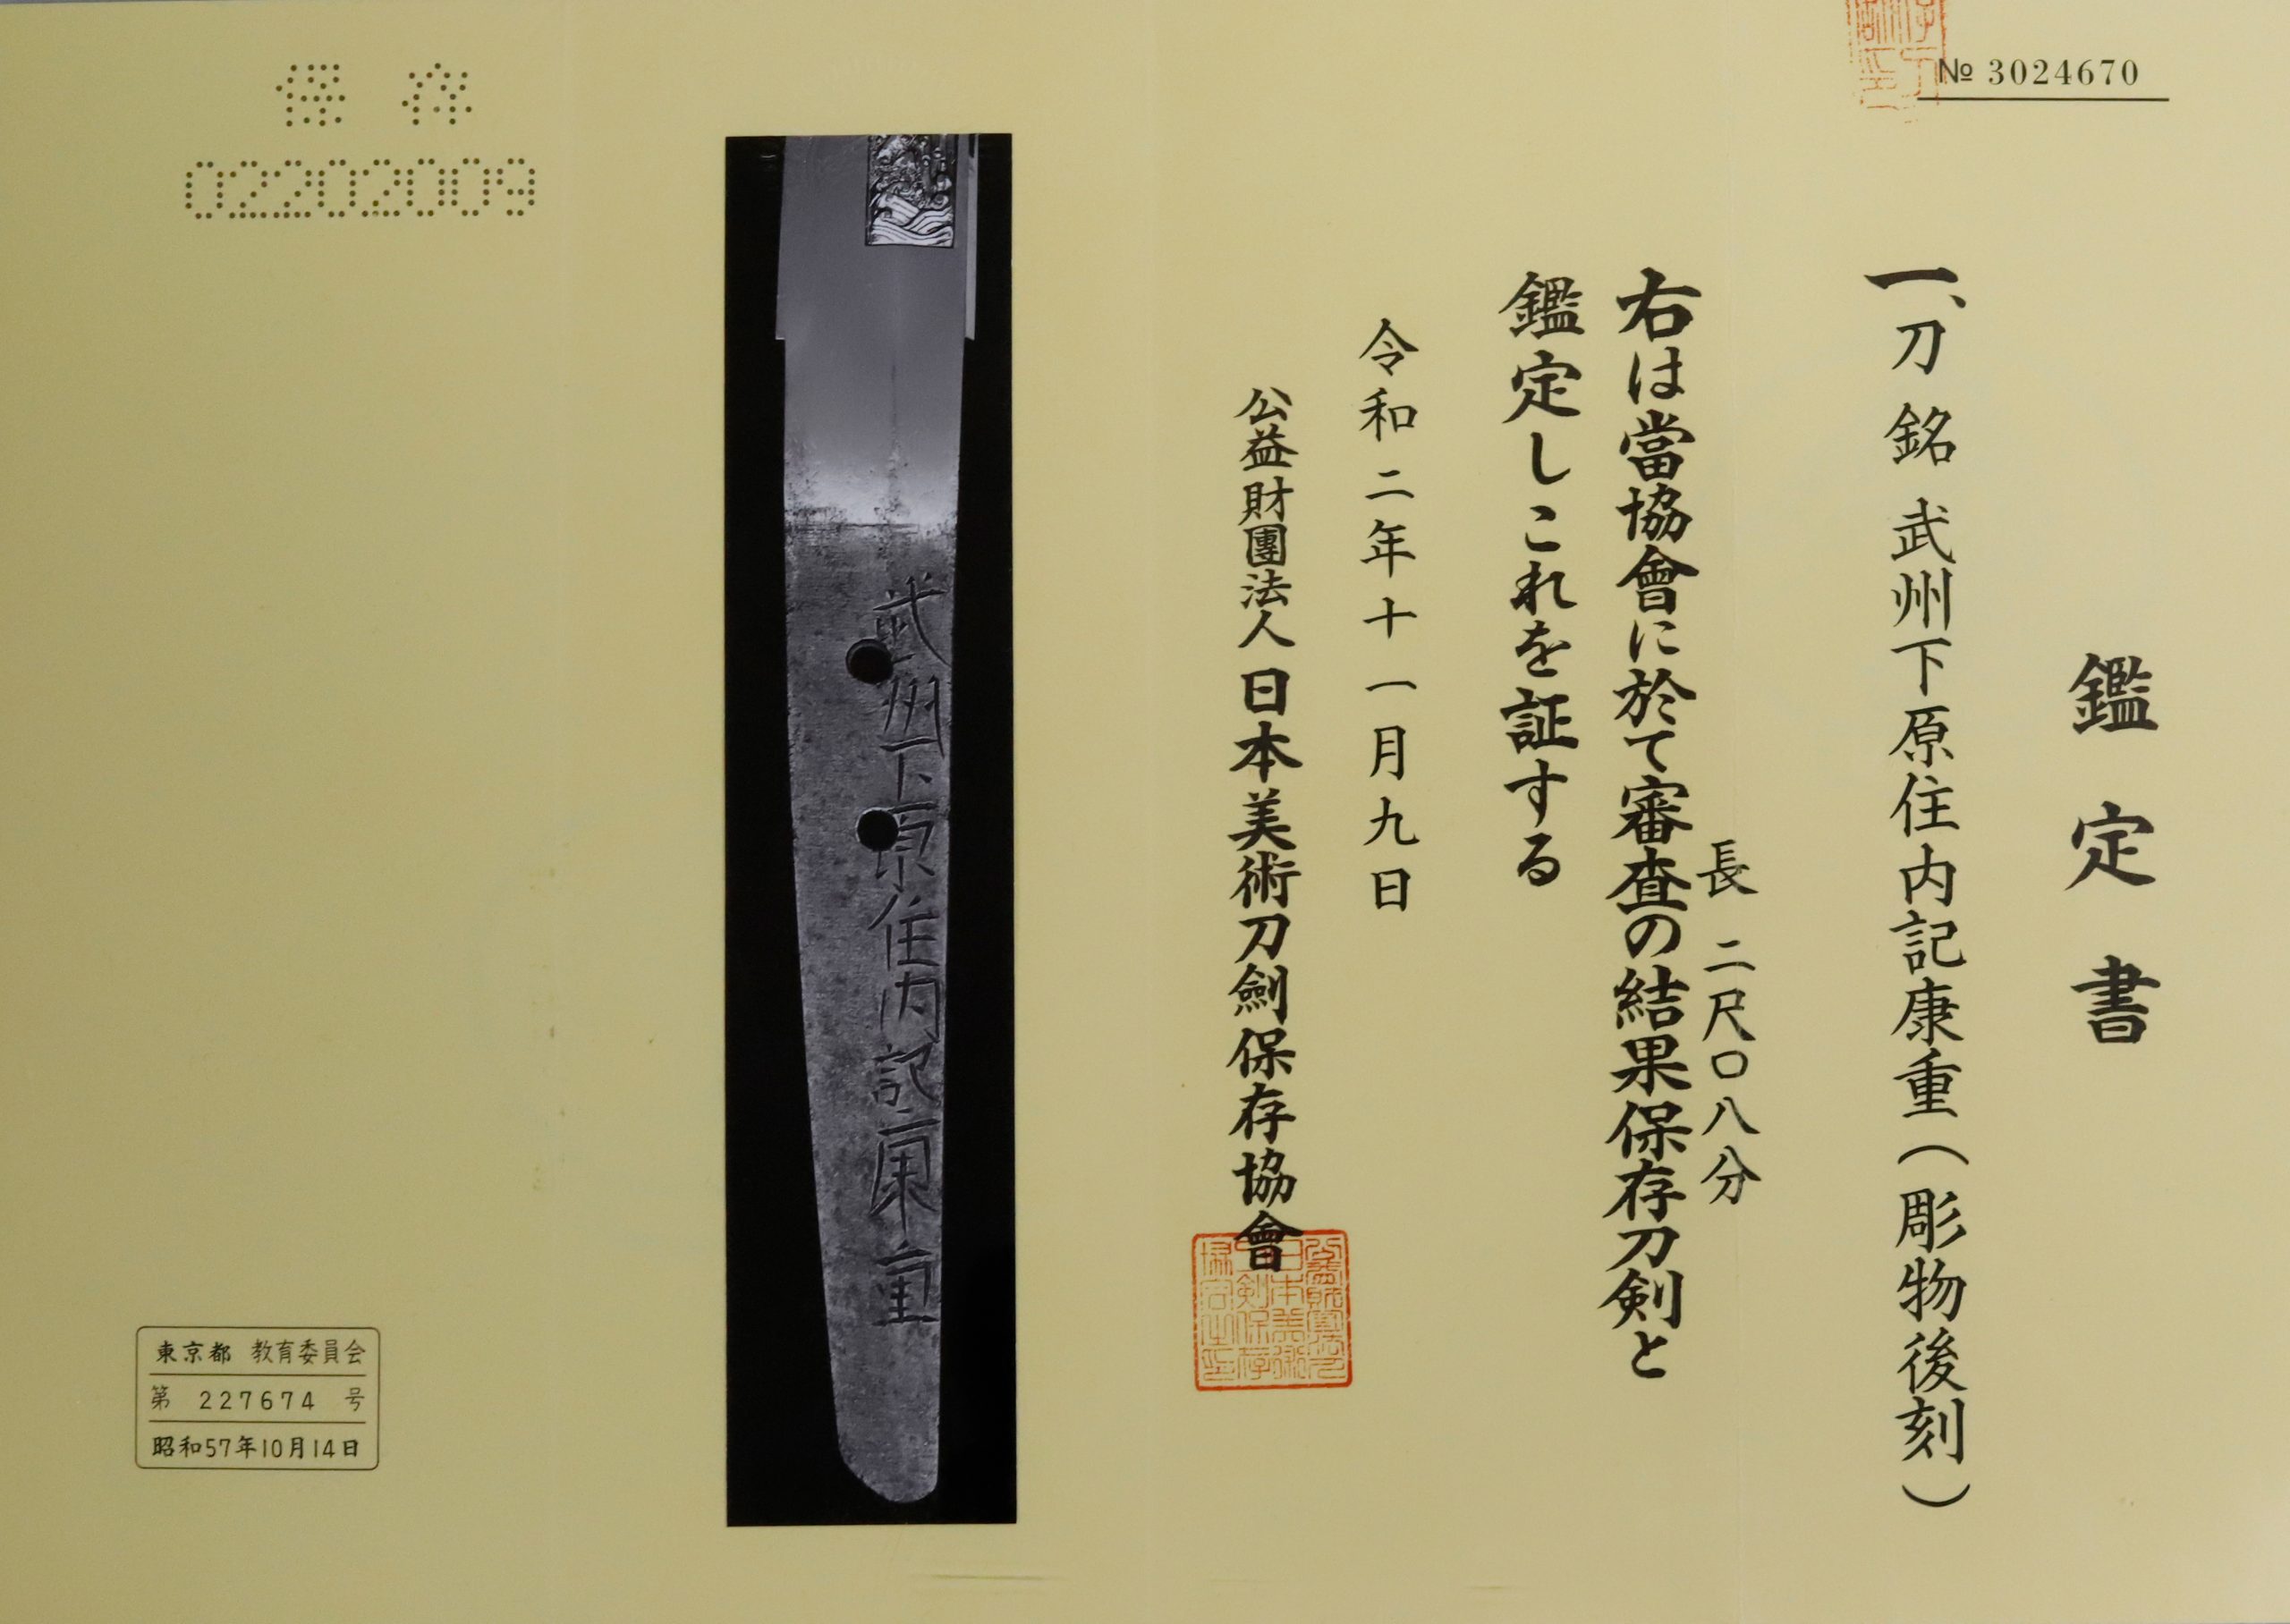 № 3024670
鑑定書
一、刀 銘 武州下原住内記康重(彫物後刻)
長 二尺〇八分
右は當協會に於て審査の結果保存刀剣と
鑑定しこれを証する
令和二年十一月九日
公益財團法人 日本美術刀劍保存協會
武州下原住内記康重
保存
02202009
東京都 教育委員会
第 227674 号
昭和57年10月14日